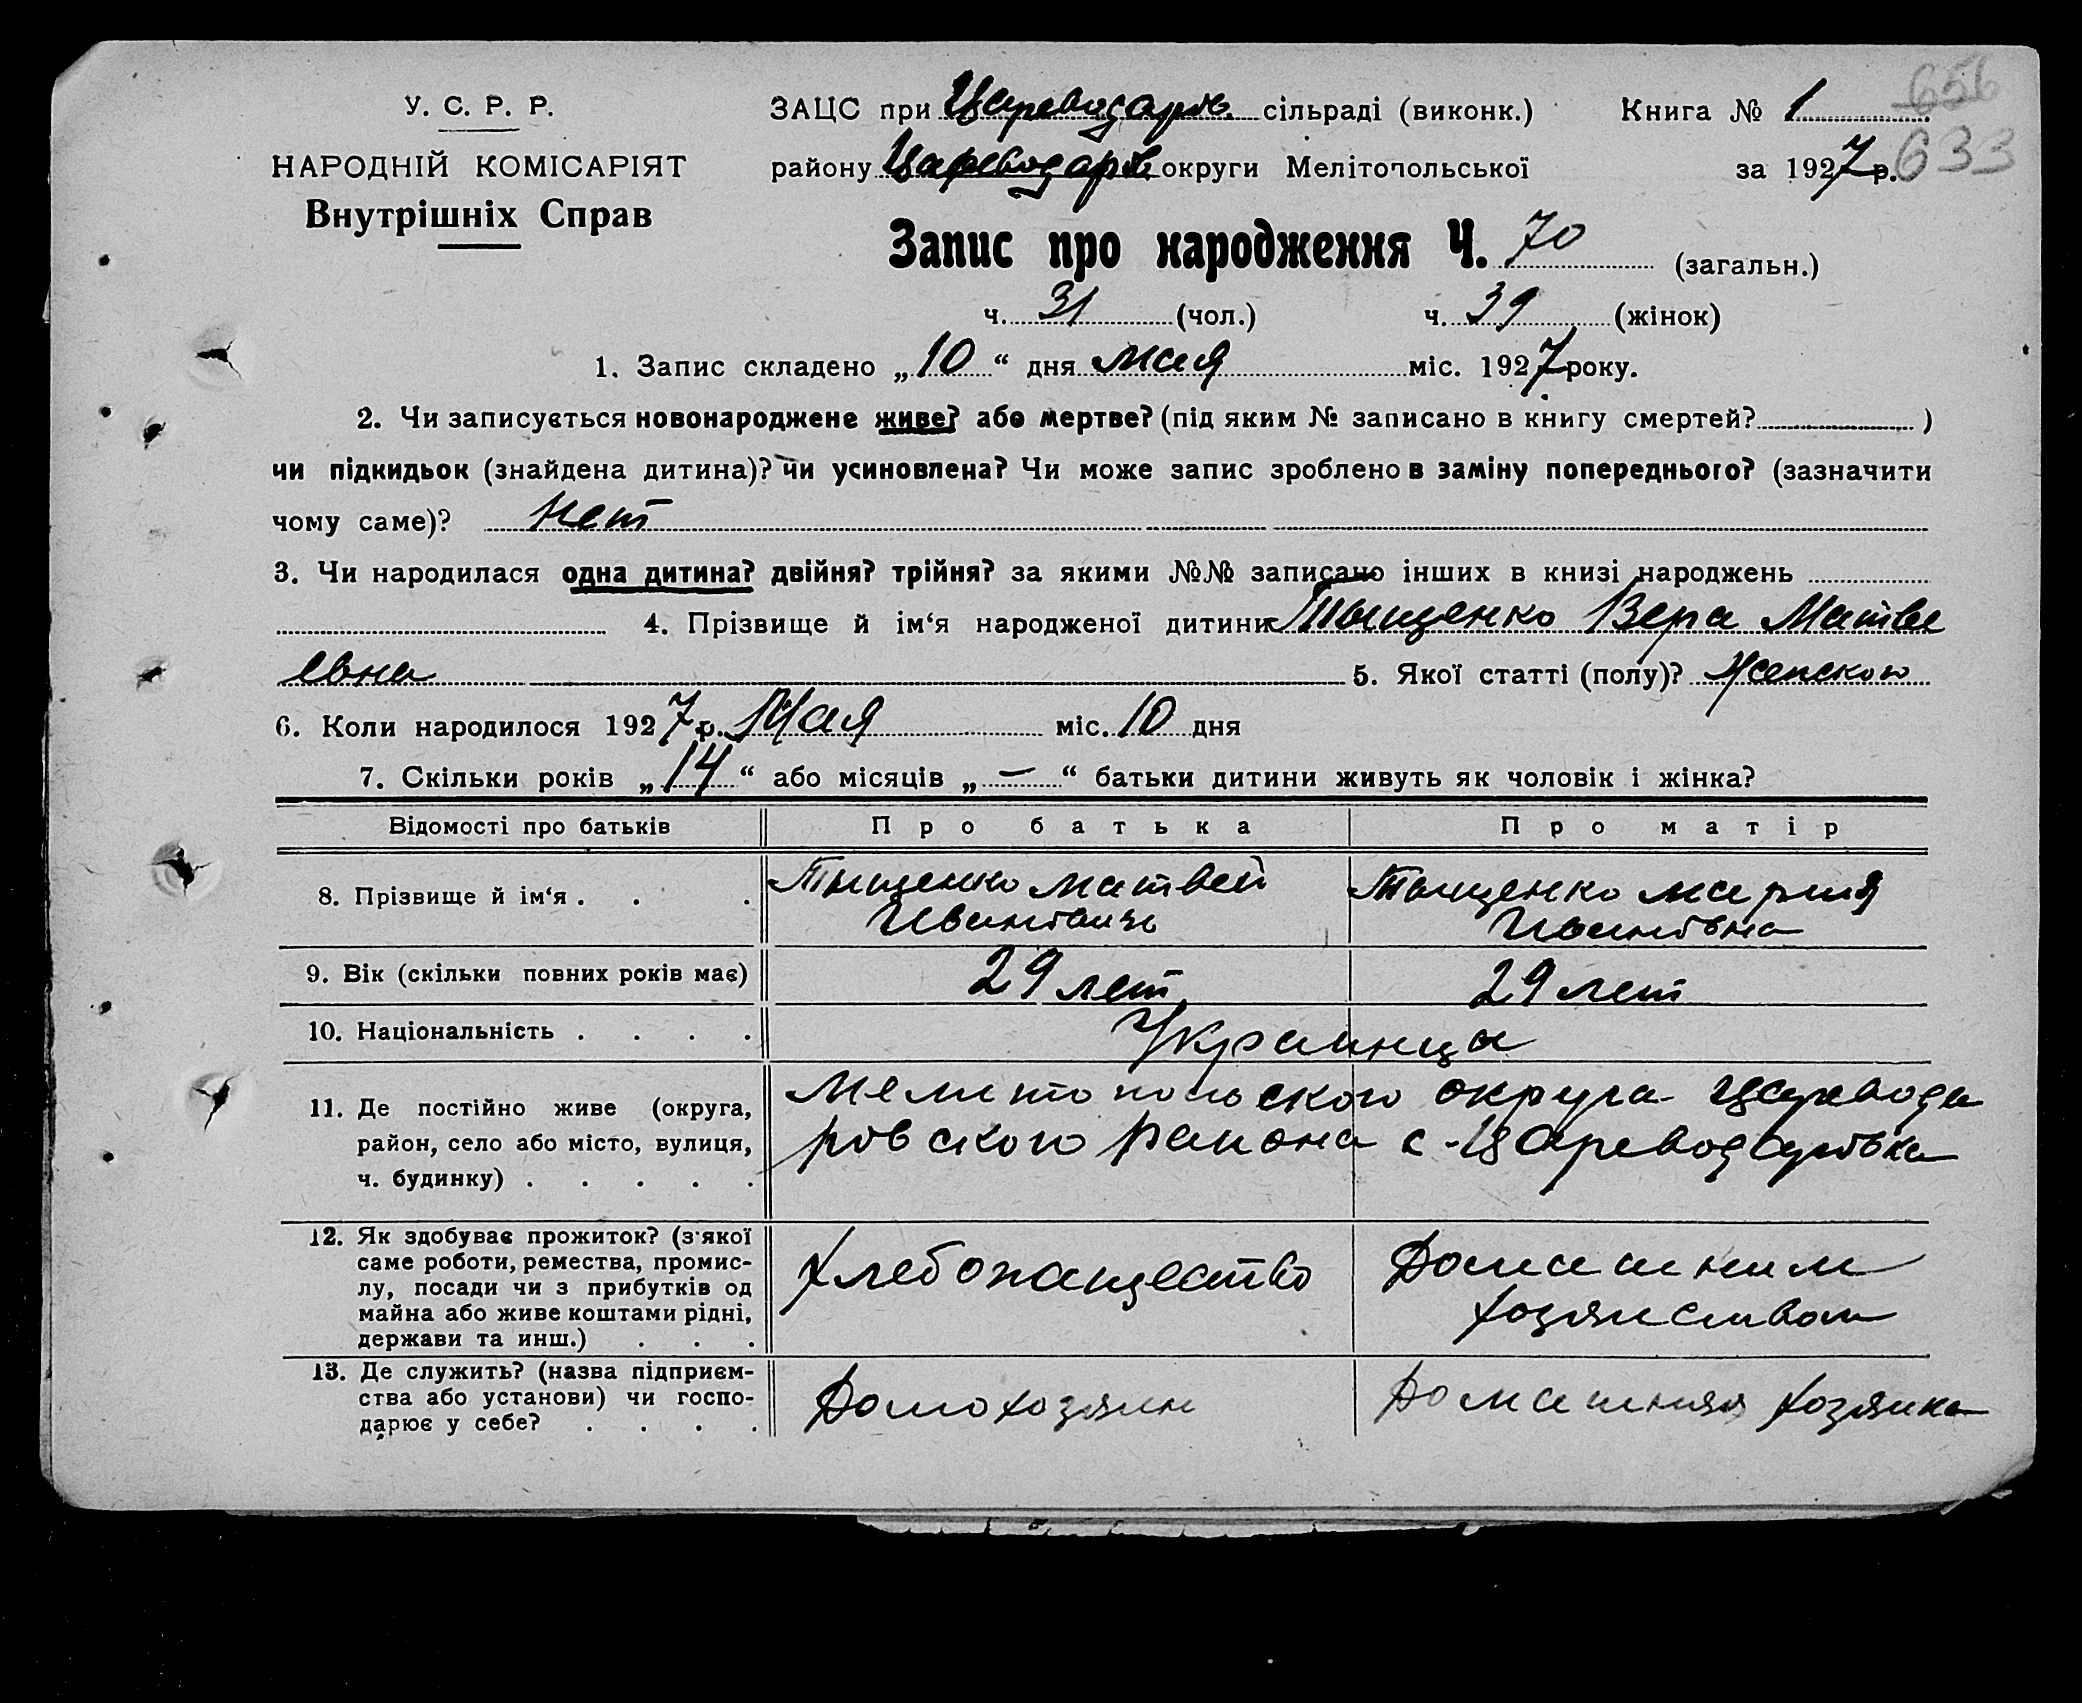 У. С. Р. Р.
НАРОДНІЙ КОМІСАРІЯТ
Внутрішніх Справ
656
633
ЗАЦС при Цареводаров. сільраді (виконк.) Книга № 1
району Цареводаров округи Мелітопольської за 1927 р.
Запис про народження Ч. 70 (загальн.)
ч. 31 (чол.) ч. 39 (жінок)
1. Запис складено „10“ дня мая міс. 1927 року.
2. Чи записується новонароджене живе? або мертве? (під яким № записано в книгу смертей? )
чи підкидьок (знайдена дитина)? чи усиновлена? Чи може запис зроблено в заміну попереднього? (зазначити
чому саме)? нет
3. Чи народилася одна дитина? двійня? трійня? за якими №№ записано інших в книзі народжень
4. Прізвище й ім‘я народженої дитини Тыщенко Вера Матве
евна 5. Якої статті (полу)? Женского
6. Коли народилося 1927 р. Мая міс. 10 дня
7. Скільки років „14“ або місяців „—“ батьки дитини живуть як чоловік і жінка?
Відомості про батьків Про батька Про матір
8. Прізвище й ім‘я . . . Тыщенко Матвей Тыщенко Мария
Иванович Ивановна
9. Вік (скільки повних років має) 29 лет 29 лет
10. Національність . . . . Украинцы
11. Де постійно живе (округа, Мелитопольского округа Царевода
район, село або місто, вулиця, ровского Района с-Цареводаровка
ч. будинку) . . . . .
12. Як здобуває прожиток? (з'якої
саме роботи, ремества, промис- Хлебопашество Домашним
лу, посади чи з прибутків од
майна або живе коштами рідні, хозяиством
держави та инш.) . . .
13. Де служить? (назва підприєм-
ства або установи) чи госпо- Домохозяин Домашняя хозяика
дарює у себе? . . . .